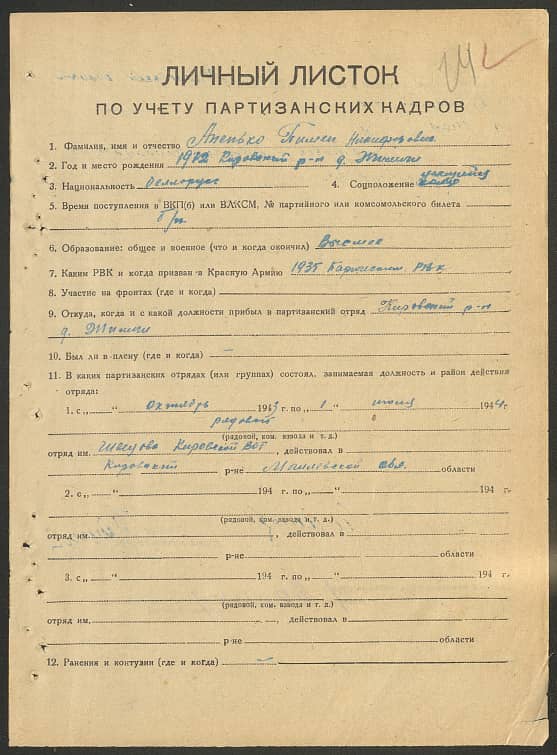 ЛИЧНЫЙ ЛИСТОК
ПО УЧЕТУ ПАРТИЗАНСКИХ КАДРОВ
1. Фамилия, имя и отчество Апенько Пимен Никифорович
2. Год и место рождения 1912 Кировский р-н д.
3. Национальность Белорус 4. Соцположение
5. Время поступления в ВКП(б) или ВЛКСМ, № партийного или комсомольского билета
б/п
6. Образование: общее и военное (что и когда окончил) Высшее
7. Каким РВК и когда призван в Красную Армию 1935 РВК
8. Участие на фронтах (где и когда)
9. Откуда, когда и с какой должности прибыл в партизанский отряд Кировский р-н
д.
10. Был ли в плену (где и когда) —
11. В каких партизанских отрядах (или группах) состоял, занимаемая должность и район действия
отряда:
1. с „ “ октябрь 1943 г. по „ 1 “ июля 1944 г.
рядовой
(рядовой, ком. взвода и т. д.)
отряд им. Кировской ВОГ, действовал в
Кировский р-не Могилевской обл. области
2. с „ “ 194 г. по „ “ 194 г.
(рядовой, ком. взвода и т. д.)
отряд им. , действовал в
р-не области
3. с „ “ 194 г. по „ “ 194 г.
(рядовой, ком. взвода и т. д.)
отряд им. , действовал в
р-не области
12. Ранения и контузии (где и когда) —